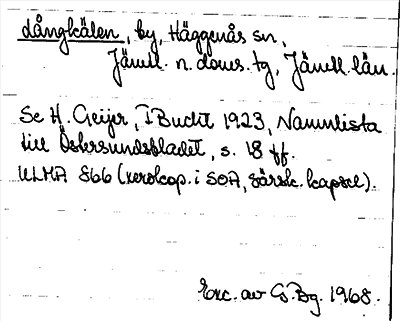 Långkälen, by, Häggenås sn,
Jämtl. n. doms. tg, Jämtl. län.
Se H. Geijer, I Bucht 1923, Namnlista
till Östersundsbladet, s. 18 ff.
ULMA 866 (xerokop. i SOA, särsk. kapsel).
Exc. av G. Bg. 1968.